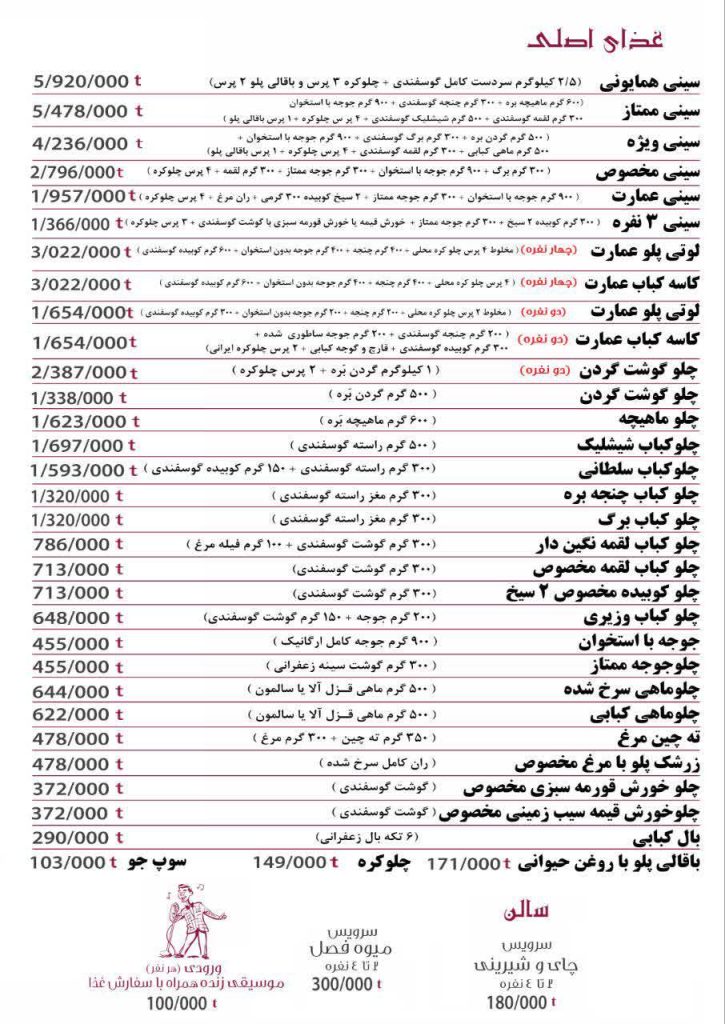 غذای اصلی
سینی همایونی (۲/۵ کیلوگرم سردست کامل گوسفندی + چلوکره ۳ پرس و باقالی پلو ۲ پرس) 5/920/000 t
سینی ممتاز (۶۰۰ گرم ماهیچه بره + ۳۰۰ گرم چنجه گوسفندی + ۹۰۰ گرم جوجه با استخوان
۳۰۰ گرم لقمه گوسفندی + ۵۰۰ گرم شیشلیک گوسفندی + ۴ پرس چلوکره + ۱ پرس باقالی پلو ) 5/478/000 t
سینی ویژه ( ۵۰۰ گرم گردن بره + ۳۰۰ گرم برگ گوسفندی + ۹۰۰ گرم جوجه با استخوان +
۵۰۰ گرم ماهی کبابی + ۳۰۰ گرم لقمه گوسفندی + ۴ پرس چلوکره + ۱ پرس باقالی پلو) 4/236/000 t
سینی مخصوص ( ۳۰۰ گرم برگ + ۹۰۰ گرم جوجه با استخوان + ۳۰۰ گرم جوجه ممتاز + ۳۰۰ گرم لقمه + ۴ پرس چلوکره ) 2/796/000 t
سینی عمارت ( ۹۰۰ گرم جوجه با استخوان + ۳۰۰ گرم جوجه ممتاز + ۲ سیخ کوبیده ۳۰۰ گرمی + ران مرغ + ۴ پرس چلوکره ) 1/957/000 t
سینی ۳ نفره ( ۳۰۰ گرم کوبیده ۲ سیخ + ۳۰۰ گرم جوجه ممتاز + خورش قیمه یا خورش قورمه سبزی با گوشت گوسفندی + ۳ پرس چلوکره ) 1/366/000 t
لوتی پلو عمارت (چهار نفره) ( مخلوط ۴ پرس چلو کره محلی + ۴۰۰ گرم چنجه + ۴۰۰ گرم جوجه بدون استخوان + ۶۰۰ گرم کوبیده گوسفندی ) 3/022/000 t
کاسه کباب عمارت (چهار نفره) ( ۴ پرس چلو کره محلی + ۴۰۰ گرم چنجه + ۴۰۰ گرم جوجه بدون استخوان + ۶۰۰ گرم کوبیده گوسفندی ) 3/022/000 t
لوتی پلو عمارت (دو نفره) ( مخلوط ۲ پرس چلو کره محلی + ۲۰۰ گرم چنجه + ۲۰۰ گرم جوجه بدون استخوان + ۳۰۰ گرم کوبیده گوسفندی ) 1/654/000 t
کاسه کباب عمارت (دو نفره) ( ۲۰۰ گرم چنجه گوسفندی + ۲۰۰ گرم جوجه ساطوری شده +
۳۰۰ گرم کوبیده گوسفندی + قارچ و گوجه کبابی + ۲ پرس چلوکره ایرانی) 1/654/000 t
چلو گوشت گردن (دو نفره) ( ۱ کیلوگرم گردن بَره + ۲ پرس چلوکره ) 2/387/000 t
چلو گوشت گردن ( ۵۰۰ گرم گردن بَره ) 1/338/000 t
چلو ماهیچه ( ۶۰۰ گرم ماهیچه بَره ) 1/623/000 t
چلوکباب شیشلیک ( ۵۰۰ گرم راسته گوسفندی ) 1/697/000 t
چلوکباب سلطانی (۳۰۰ گرم راسته گوسفندی + ۱۵۰ گرم کوبیده گوسفندی ) 1/593/000 t
چلو کباب چنجه بره (۳۰۰ گرم مغز راسته گوسفندی ) 1/320/000 t
چلو کباب برگ (۳۰۰ گرم مغز راسته گوسفندی ) 1/320/000 t
چلو کباب لقمه نگین دار (۳۰۰ گرم گوشت گوسفندی + ۱۰۰ گرم فیله مرغ ) 786/000 t
چلو کباب لقمه مخصوص (۳۰۰ گرم گوشت گوسفندی) 713/000 t
چلو کوبیده مخصوص ۲ سیخ (۳۰۰ گرم گوشت گوسفندی) 713/000 t
چلو کباب وزیری (۲۰۰ گرم جوجه + ۱۵۰ گرم گوشت گوسفندی) 648/000 t
جوجه با استخوان ( ۹۰۰ گرم جوجه کامل ارگانیک ) 455/000 t
چلوجوجه ممتاز ( ۳۰۰ گرم گوشت سینه زعفرانی ) 455/000 t
چلوماهی سرخ شده ( ۵۰۰ گرم ماهی قـزل آلا یا سالمون ) 644/000 t
چلوماهی کبابی ( ۵۰۰ گرم ماهی قـزل آلا یا سالمون ) 622/000 t
ته چین مرغ ( ۳۵۰ گرم ته چین + ۳۰۰ گرم مرغ ) 478/000 t
زرشک پلو با مرغ مخصوص ( ران کامل سرخ شده ) 478/000 t
چلو خورش قورمه سبزی مخصوص ( گوشت گوسفندی ) 372/000 t
چلوخورش قیمه سیب زمینی مخصوص ( گوشت گوسفندی ) 372/000 t
بال کبابی (۶ تکه بال زعفرانی) 290/000 t
باقالی پلو با روغن حیوانی 171/000 t چلوکره 149/000 t سوپ جو 103/000 t
سالن
سرویس
چای و شیرینی
۲ تا ۴ نفره
180/000 t
سرویس
میوه فصل
۲ تا ۴ نفره
300/000 t
ورودی (هر نفر)
موسیقی زنده همراه با سفارش غذا
100/000 t